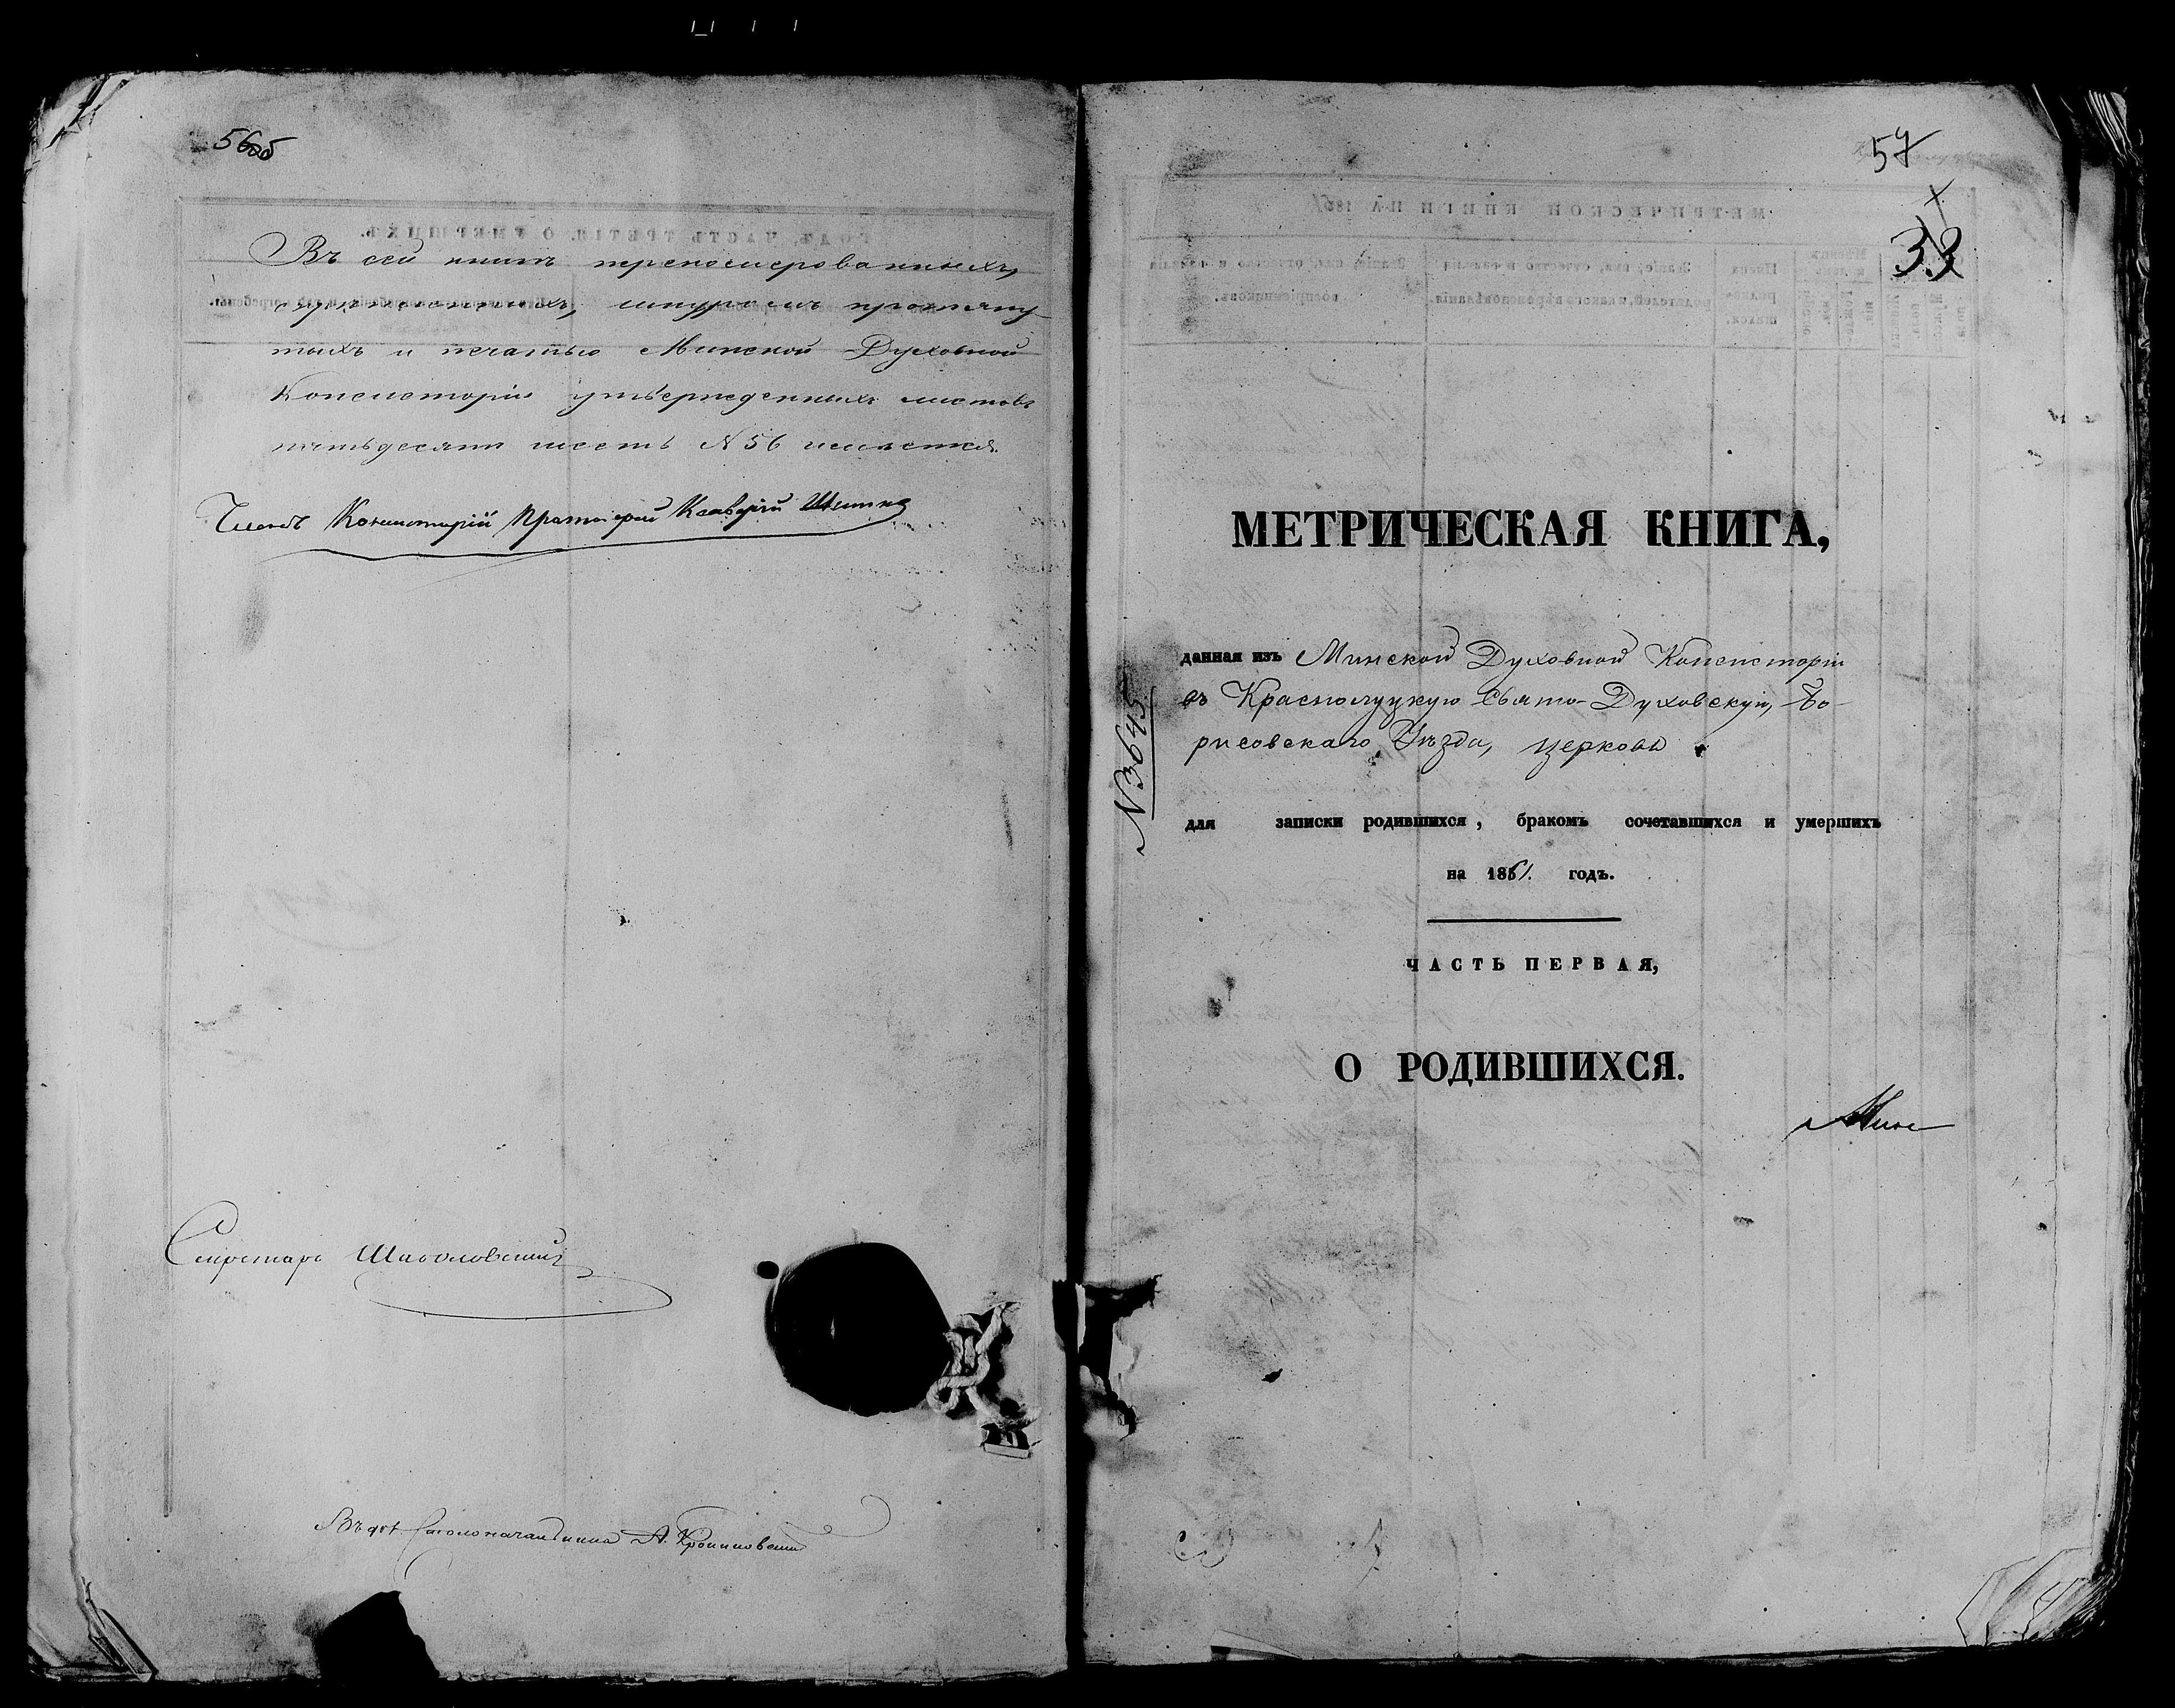 56об
Въ сей книгѣ перенумерованныхъ,
скрѣпленныхъ, шнуромъ протяну-
тыхъ и печатью Минской Духовной
Консисторіи утвержденныхъ листовъ
пятьдесятъ шесть №56 числится.
Членъ Консисторіи Протоіерей
Секретарь
Столоначальника А.
57
33
МЕТРИЧЕСКАЯ КНИГА,
данная изъ Минской Духовной Консисторіи
въ Краснолуцкую Свято-Духовскую, Бо-
рисовскаго Уѣзда, церковь
№3645.
для записки родившихся, бракомъ сочетавшихся и умершихъ
на 1861. годъ.
ЧАСТЬ ПЕРВАЯ,
О РОДИВШИХСЯ.